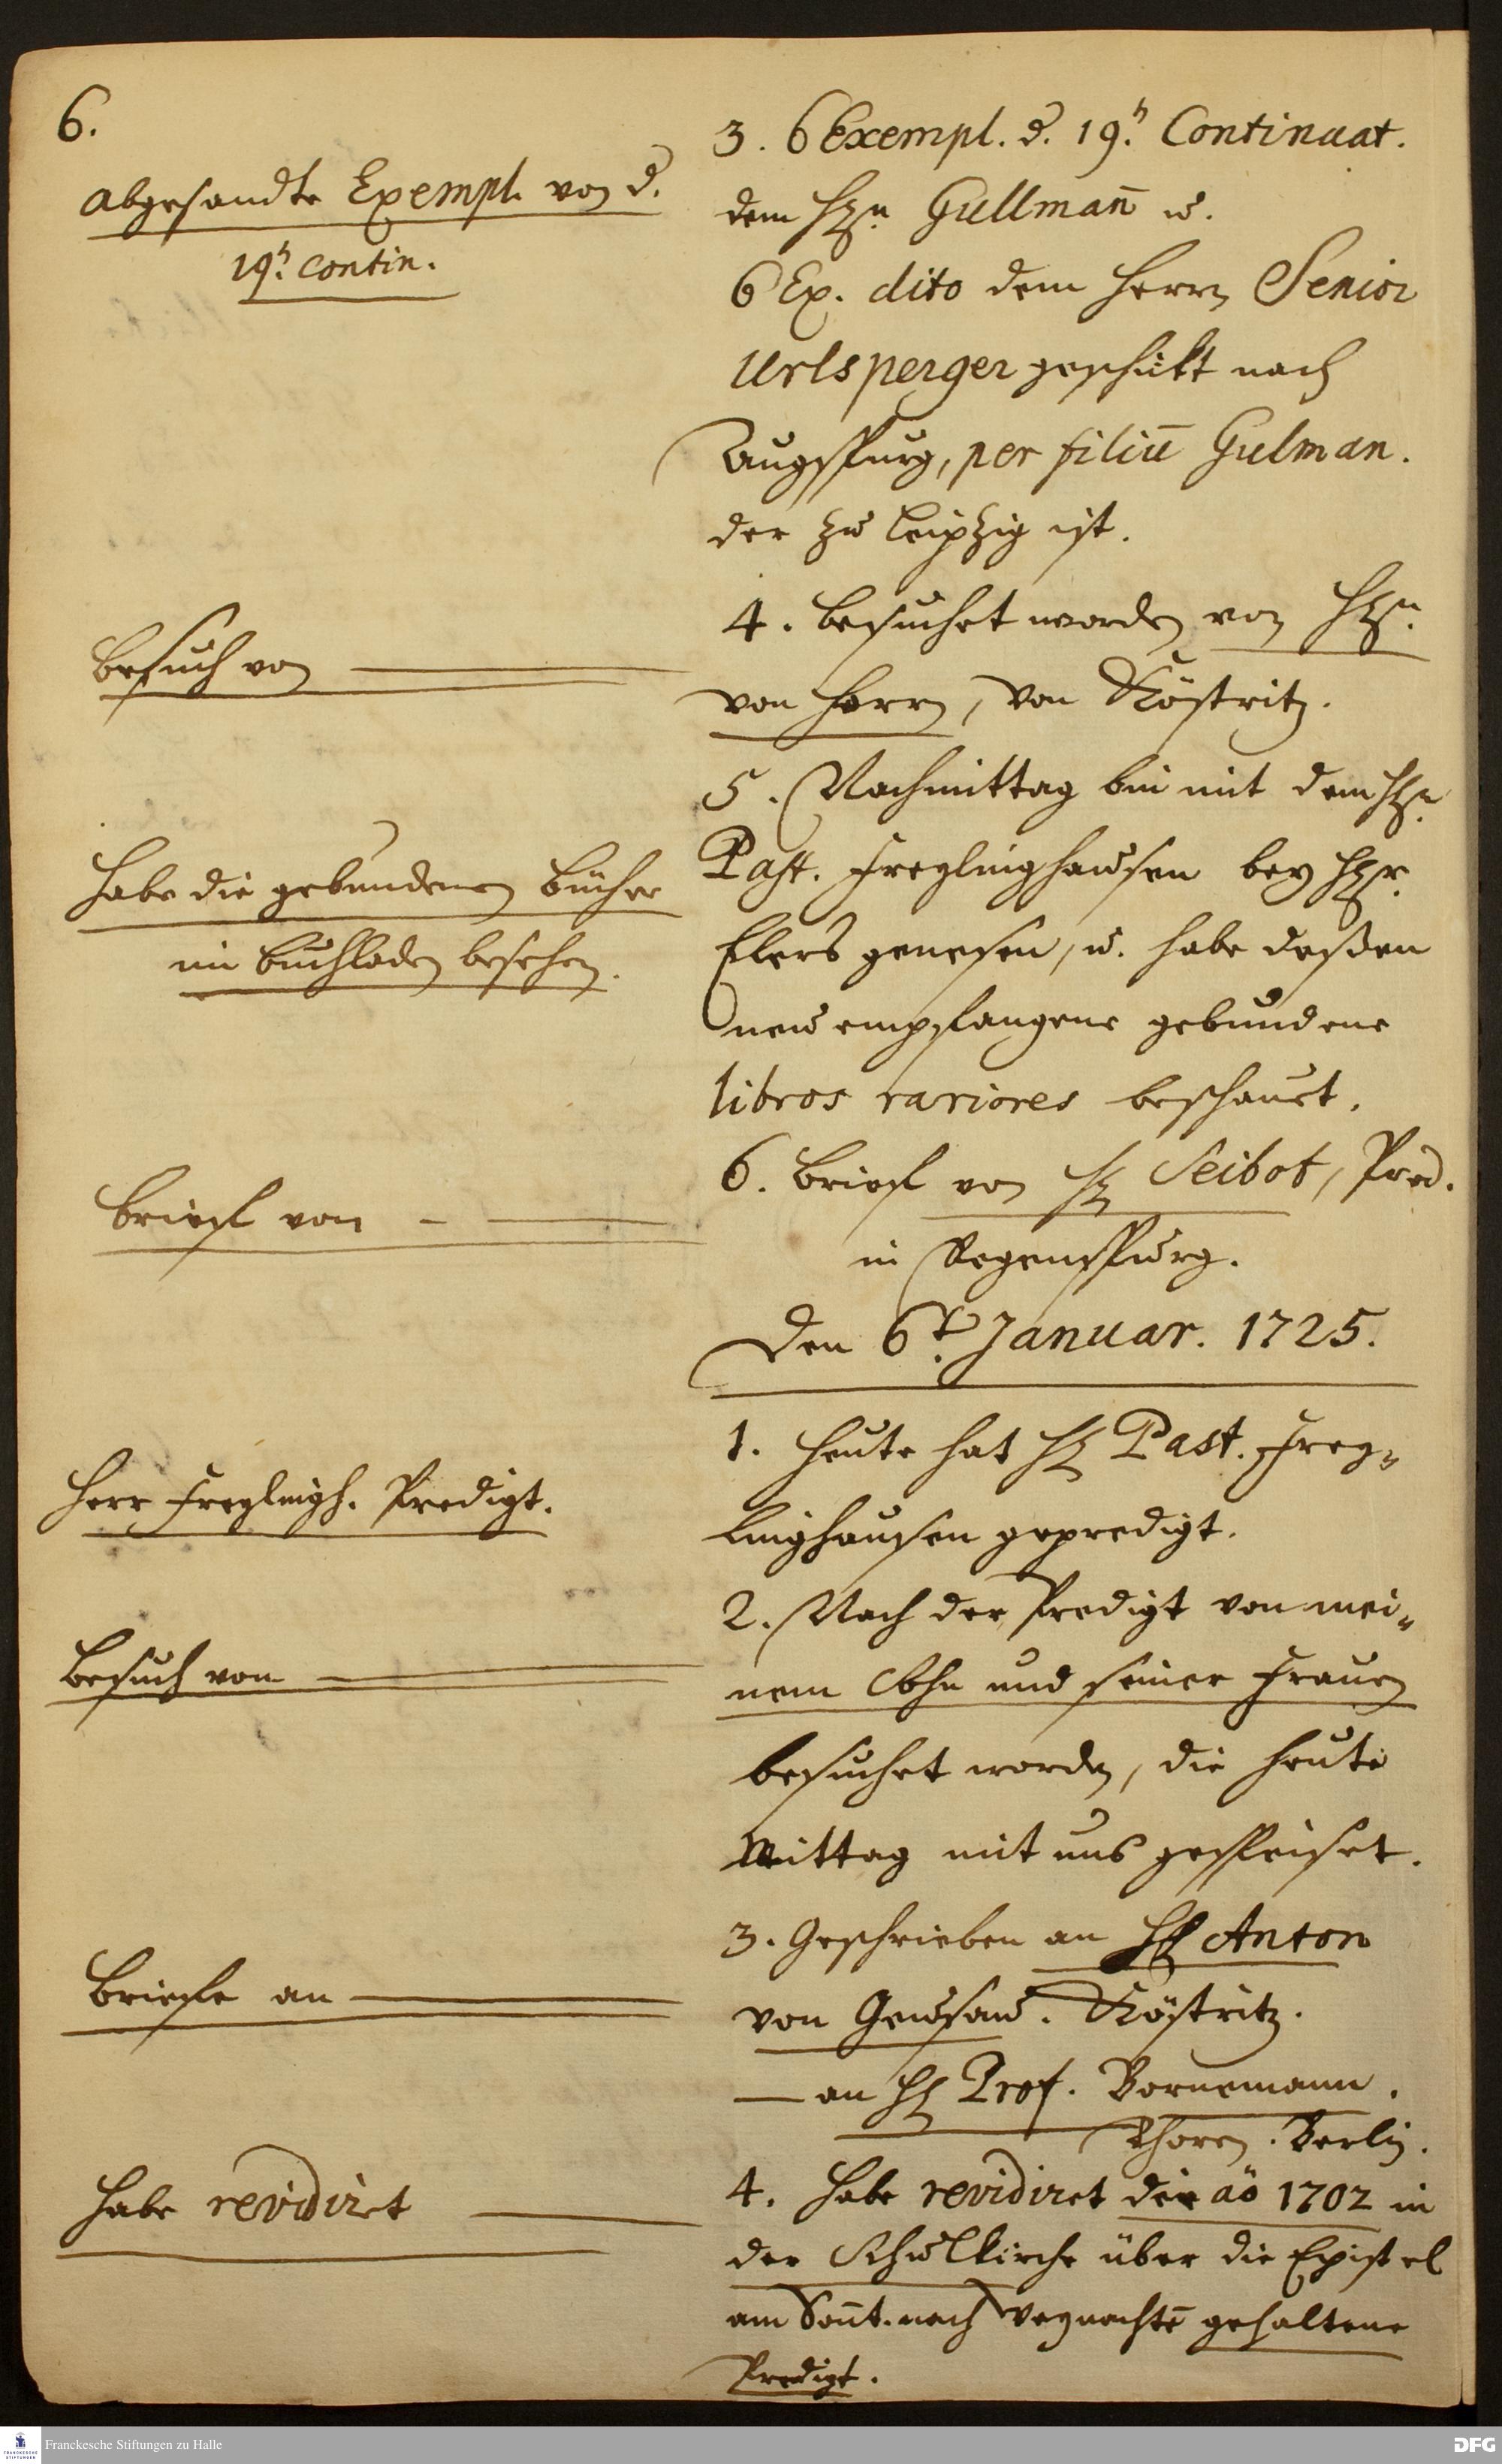 6.
abgesandte Exempl. von d.
19n. Contin.
3. 6 Exempl. d. 19n. Continuat.
dem Hrn. Gullmañ u.
6 Ex. dito dem Herrn Senior
Urlsperger geschickt nach
Augspurg, per filiū Gulman.
der zu Leipzig ist.
Besuch von
4. Besuchet worden von Hrn.
von Herrn, von Köstritz.
Habe die gebundenen Bücher
im Buchladen besehen.
5. Nachmittag bin mit dem Hrn.
Past. Freylinghausen bey Hrr.
Elers gewesen, u. habe deßen
neu empfangene gebundene
libros rariores beschauet.
Brieff von
6. Brieff von H. Seibot, Pred.
in Regenspurg.
Den 6t. Januar. 1725.
Herr Freylingh. Predigt.
1. Heute hat H. Past. Frey-
linghausen gepredigt.
Besuch von
2. Nach der Predigt von mei-
nem Sohn und seiner Frauen
besuchet worden, die heute
Mittag mit uns gespeiset.
Brieffe an
3. Geschrieben an H. Anton
von Geusau. Köstritz.
— an H. Prof. Bornemann.
Thoren. Berlin.
Habe revidiret
4. Habe revidiret die aō 1702 in
der Schulkirche über die Epistel
am Soñt. nach Weynachtē gehaltene
Predigt.
Franckesche Stiftungen zu Halle
DFG